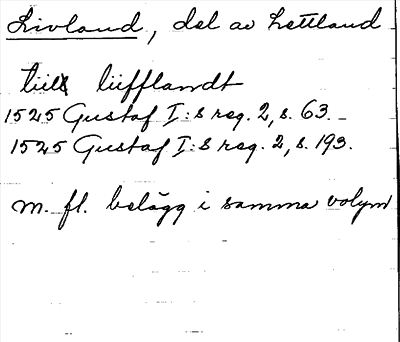 Livland, del av Lettland
till liifflandt
1525 Gustaf I:s reg. 2, s. 63.
1525 Gustaf I:s reg. 2, s. 193.
m. fl. belägg i samma volym